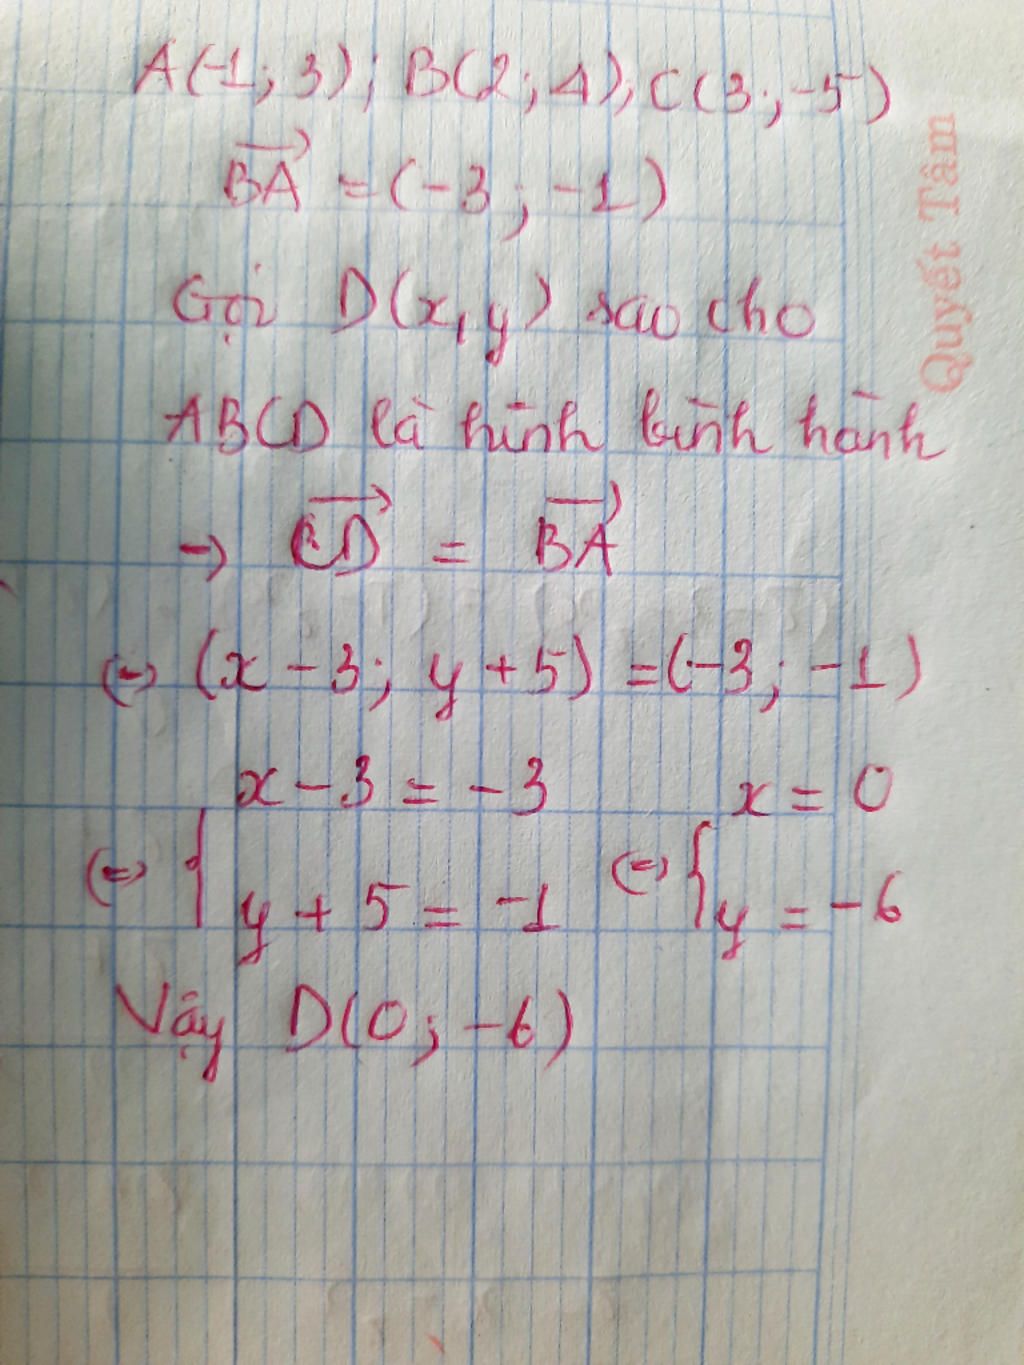 A(-1; 3); B(2; 4); C(3; -5)
BA = (-3; -1)
Gọi D(x, y) sao cho
ABCD là hình bình hành
→ CD = BA
⇔ (x - 3; y + 5) = (-3; -1)
x - 3 = -3 x = 0
⇔ { ⇔ {
y + 5 = -1 y = -6
Vậy D(0; -6)
Quyết Tâm